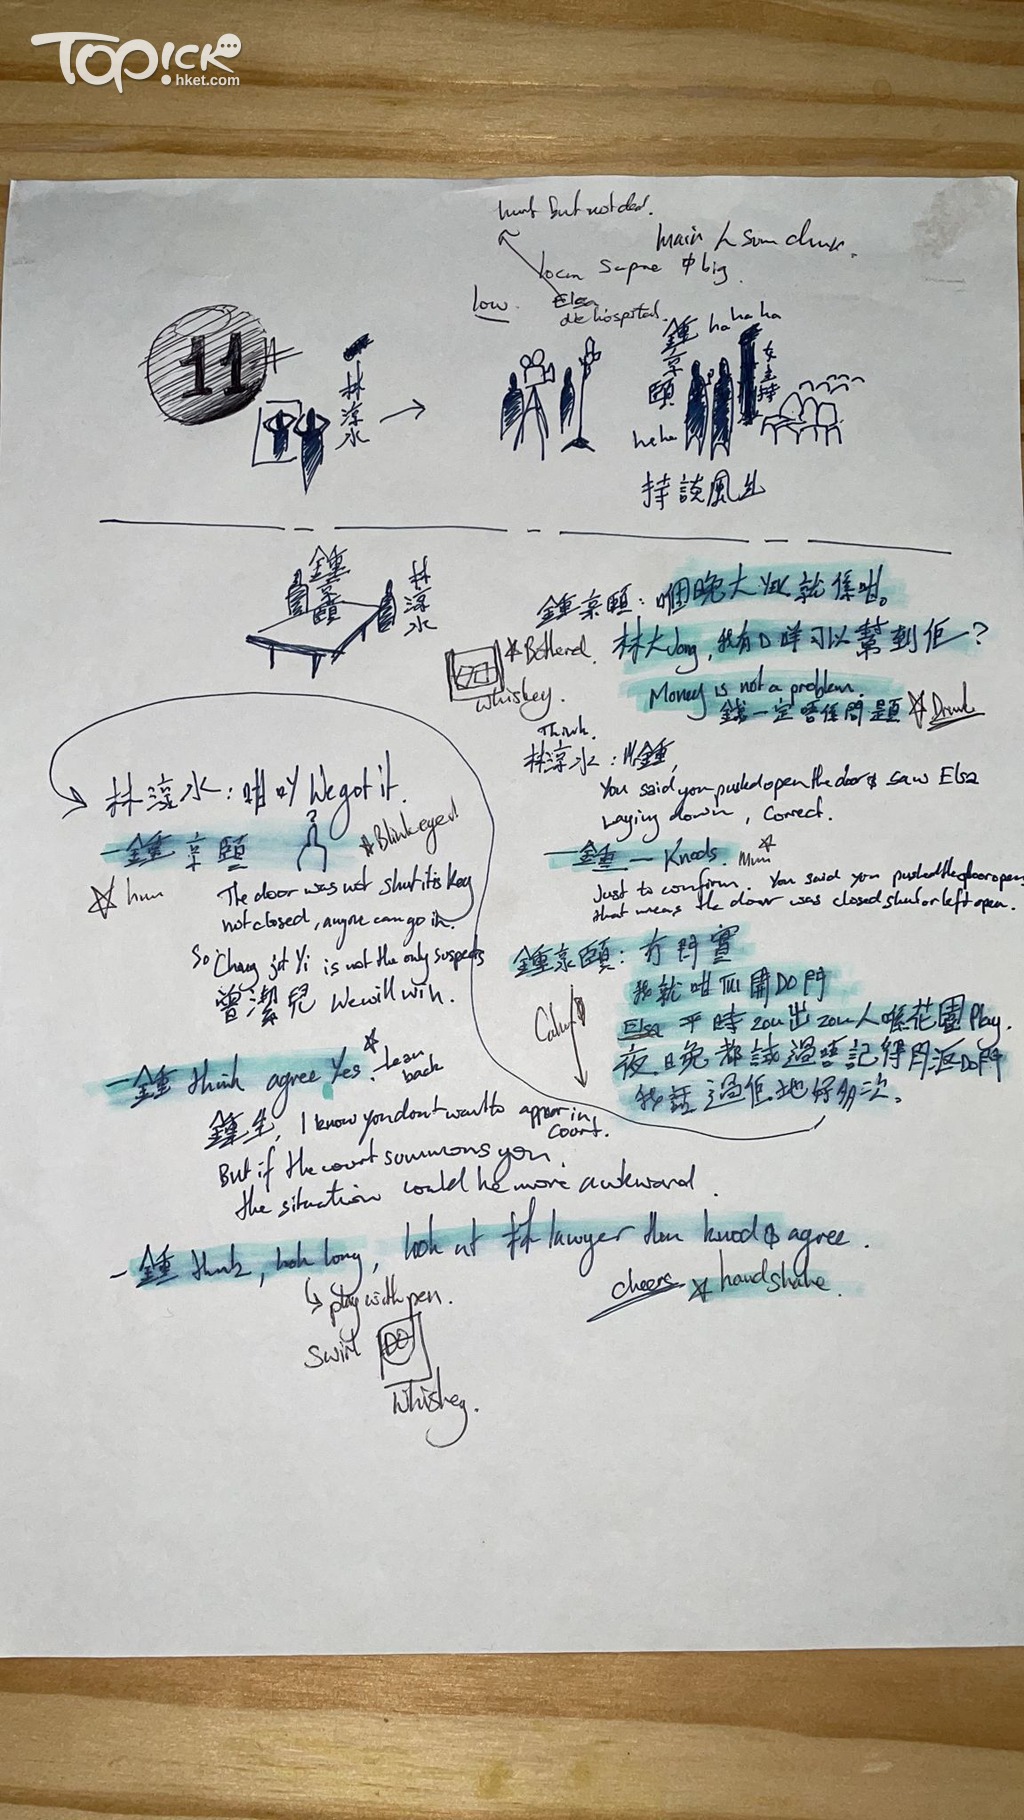 TOPick
hket.com
hurt but not dead.
main
big
low.
Elsa
hospital.
11
林淳水
鍾京頤
ha ha ha
女主持
hehe
持談風生
鍾京頤
林淳水
鍾京頤：嗰晚大 就係咁。
林大 ，我有D咩可以幫到佢？
whiskey.
Money is not a problem.
錢一定唔係問題
Drink
Think.
林淳水：鍾，
You said you pushed open the door & saw Elsa
laying down, correct.
一鍾 — Knods.
Just to confirm. You said you pushed the door open
that means the door was closed shut or left open.
鍾京頤：冇閂實
我就咁 開DO門
Elsa 平時zou出zou入喺花園Play.
夜晚都試過唔記得閂返DO門
我話過佢地好多次。
林淳水：咁 We got it.
一鍾京頤
Blink eyes!
hum
The door was not shut it is key
not closed, anyone can go in.
So Chang jit Yi is not the only suspects
曾潔兒 We will win.
一鍾 think agree Yes.
Lean
back
鍾生, I know you dont want to appear in
court.
But if the court summons you,
the situation could be more awkward.
一鍾 think, look long, look at 林 lawyer then knod & agree.
play with pen.
cheers
handshake.
Swirl
Whiskey.